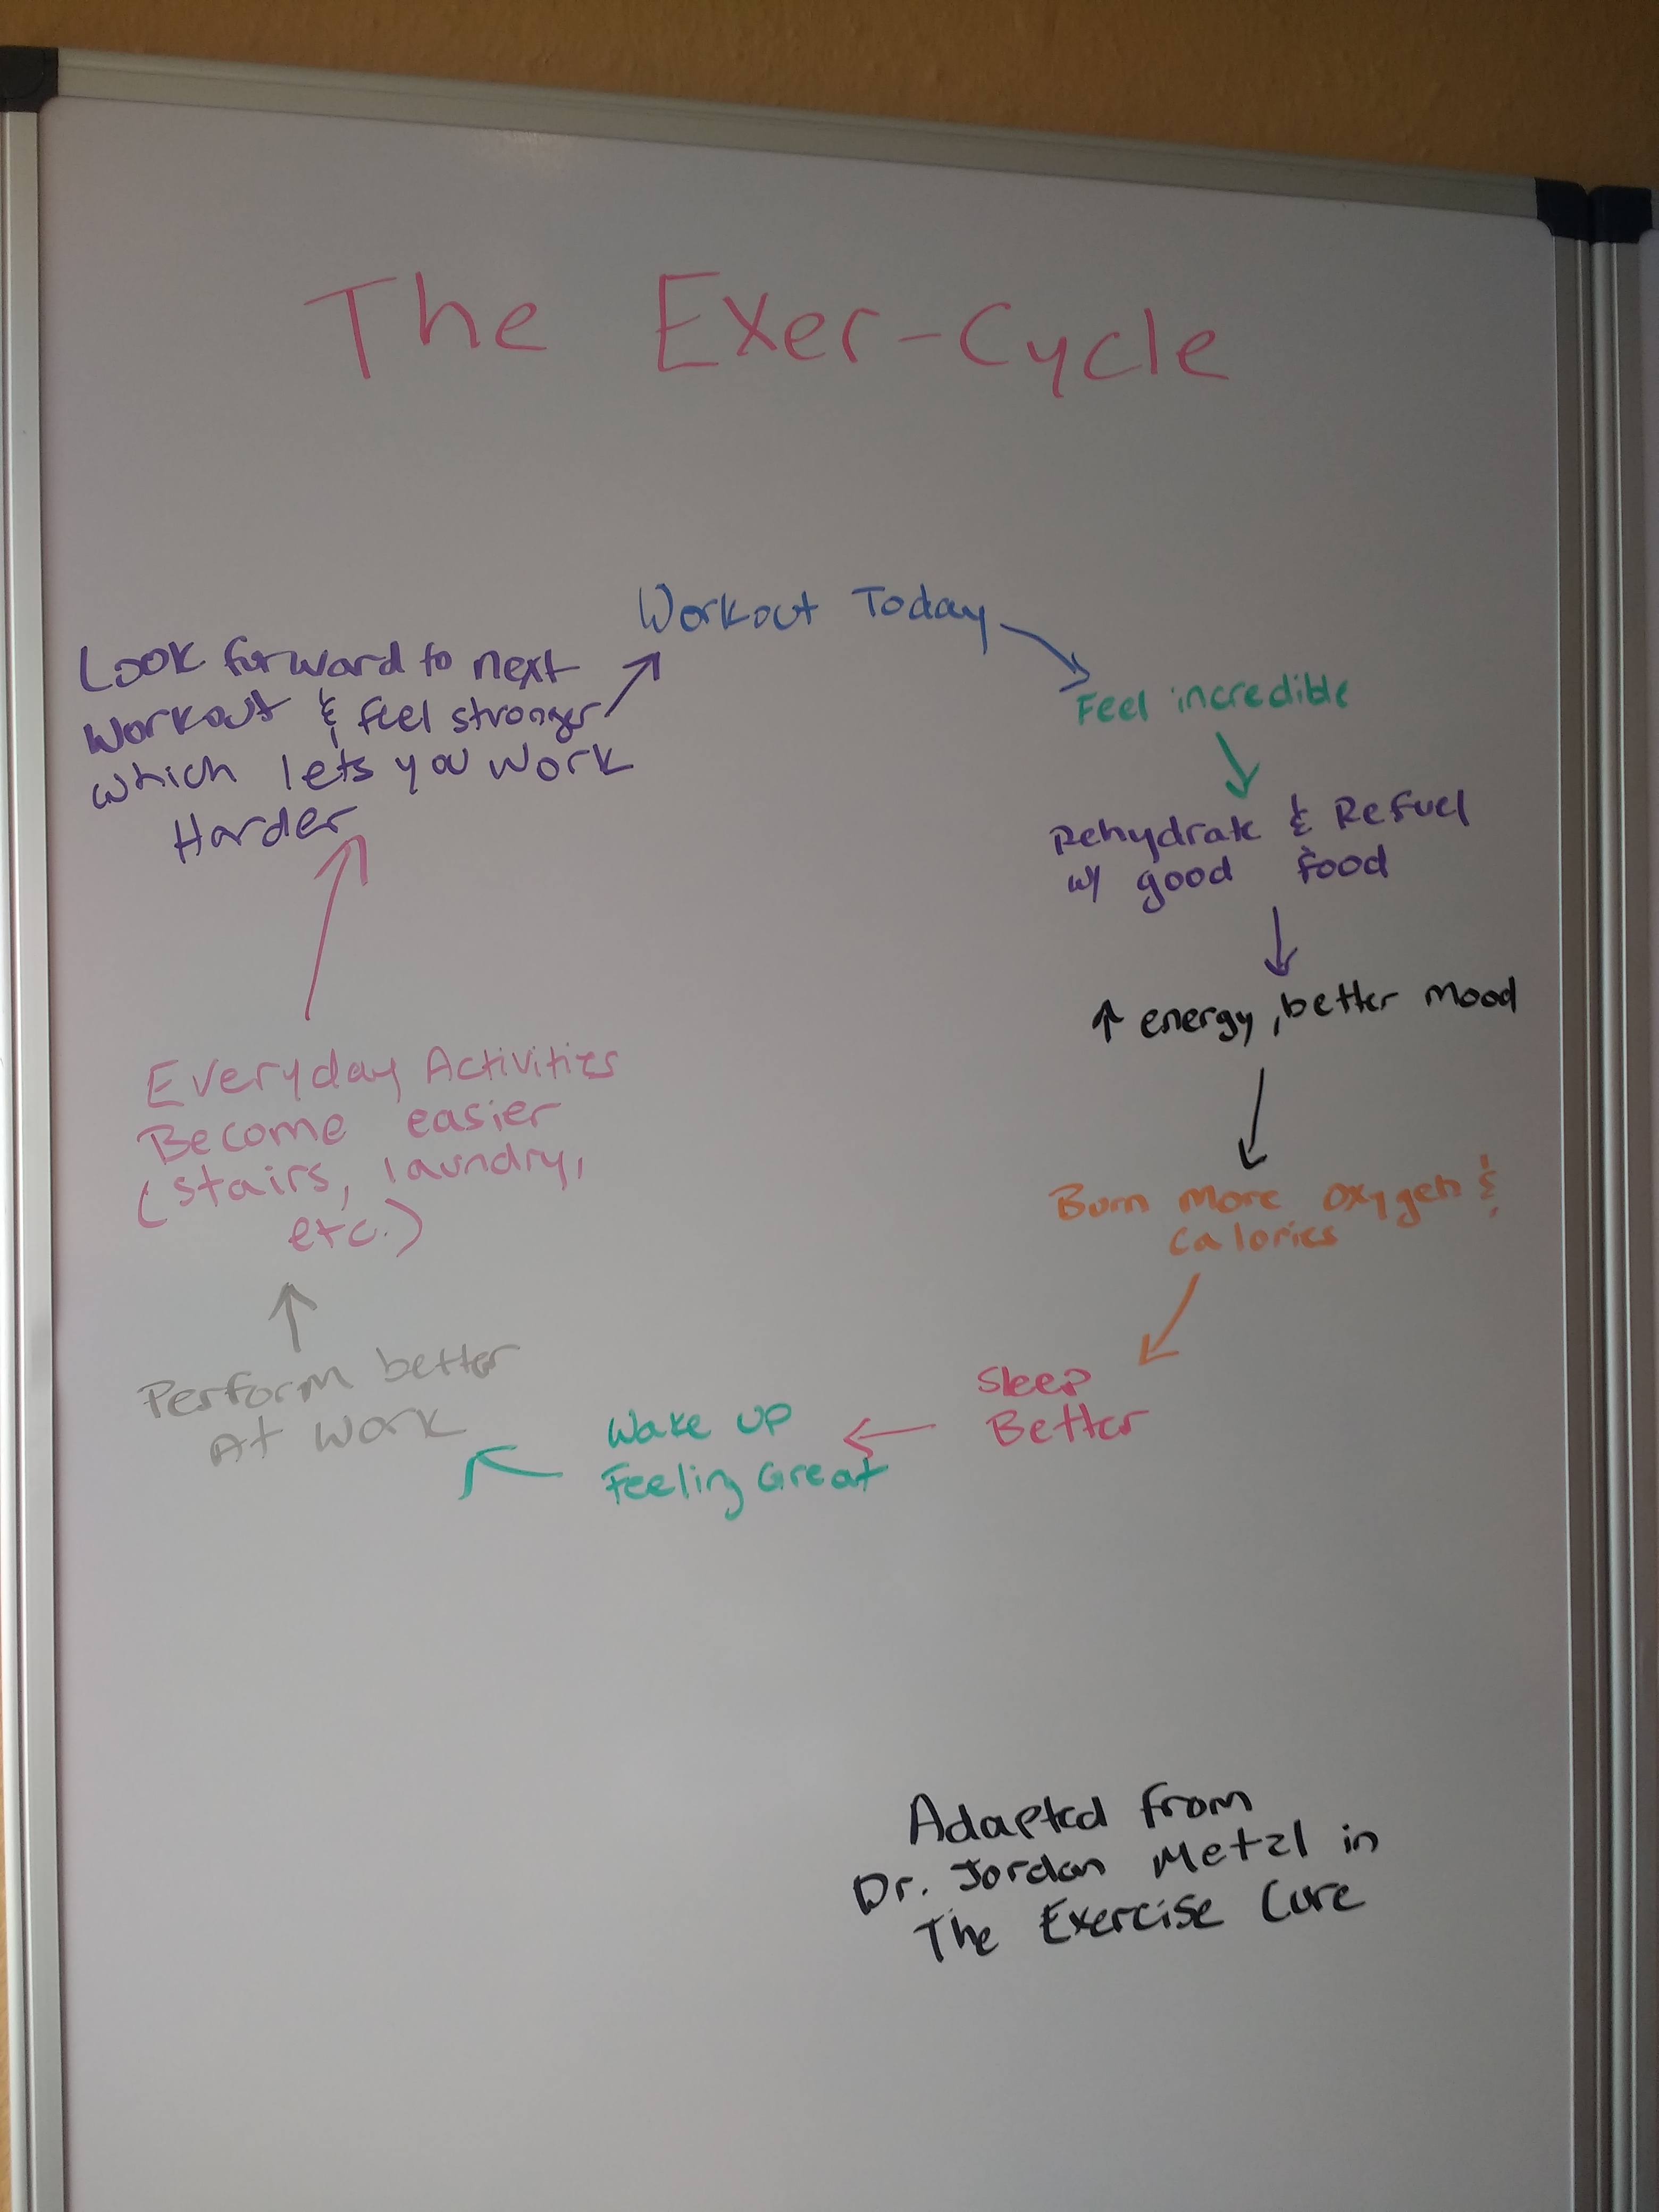 The Exer-Cycle
Workout Today
Feel incredible
Rehydrate & Refuel
w/ good food
↑ energy, better mood
Burn more oxygen &
calories
Sleep
Better
Wake up
Feeling Great
Perform better
At Work
Everyday Activities
Become easier
(stairs, laundry,
etc.)
Look forward to next
workout & feel stronger
which lets you work
Harder
Adapted from
Dr. Jordan Metzl in
The Exercise Cure